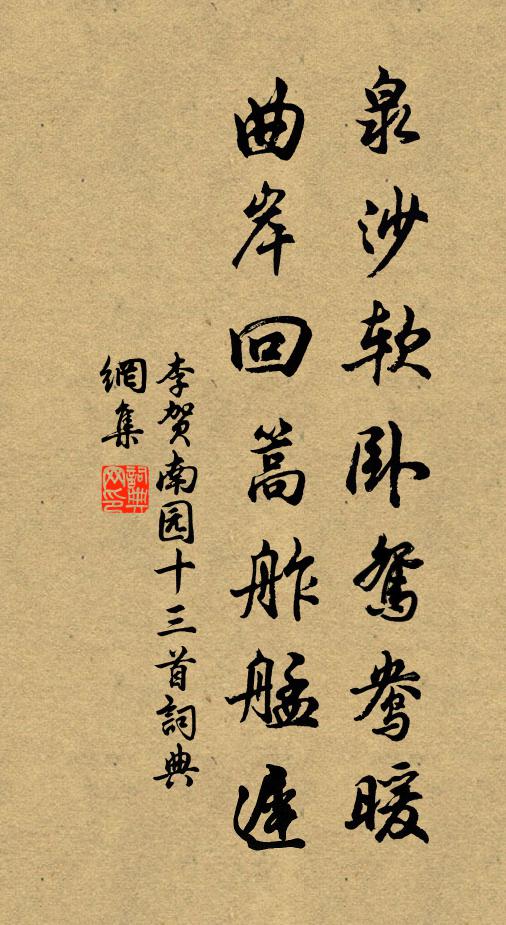 泉沙软卧鸳鸯暖
曲岸回篙舴艋迟
李贺南园十三首詞典
網集
詞典
网印